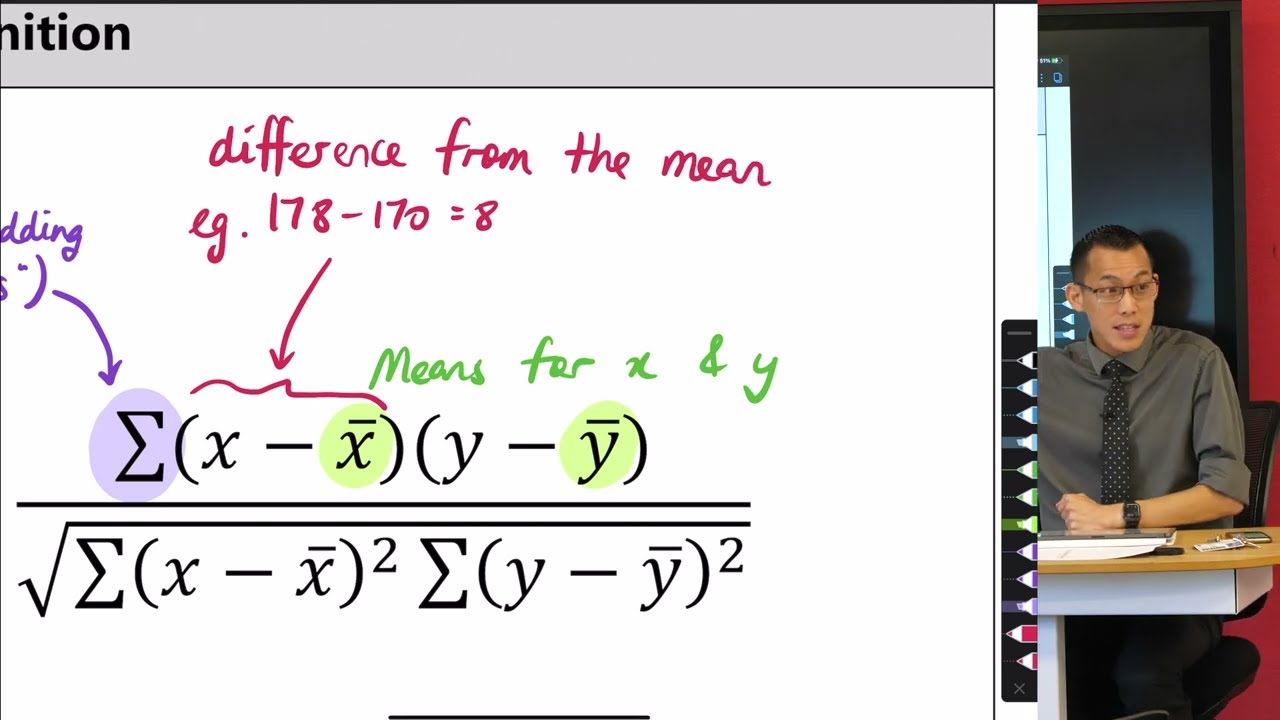 nition
difference from the mean
eg. 178-170=8
dding
s")
Means for x & y
∑(x − x̄)(y − ȳ)
√∑(x − x̄)² ∑(y − ȳ)²
51%